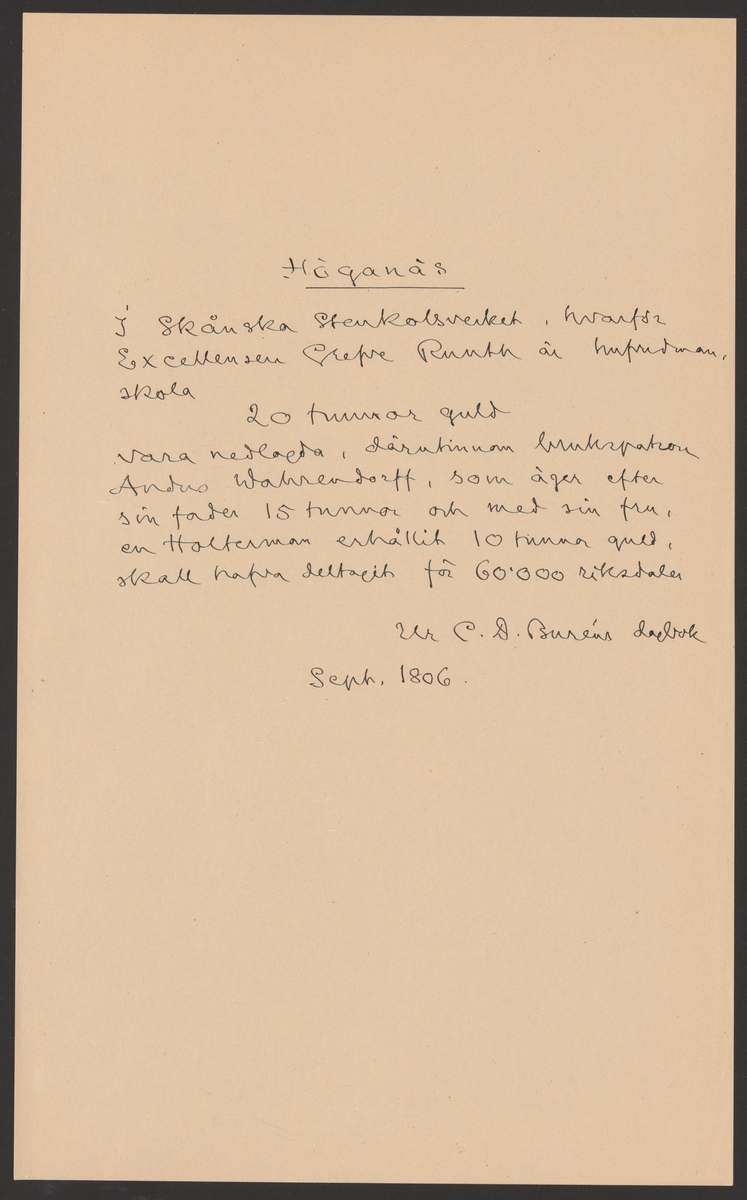 Höganäs
I Skånska Stenkolsverket, hvarför
Excellensen Grefve Ruuth är hufvudman,
skola
20 tunnor guld
vara nedlagda, därutinnam brukspatron
Anders Wahrendorff, som äger efter
sin fader 15 tunnor och med sin fru,
en Holterman erhållit 10 tunnor guld,
skall hafva deltagit för 60'000 riksdaler
Ur C. D. Buréns dagbok
Sept. 1806.